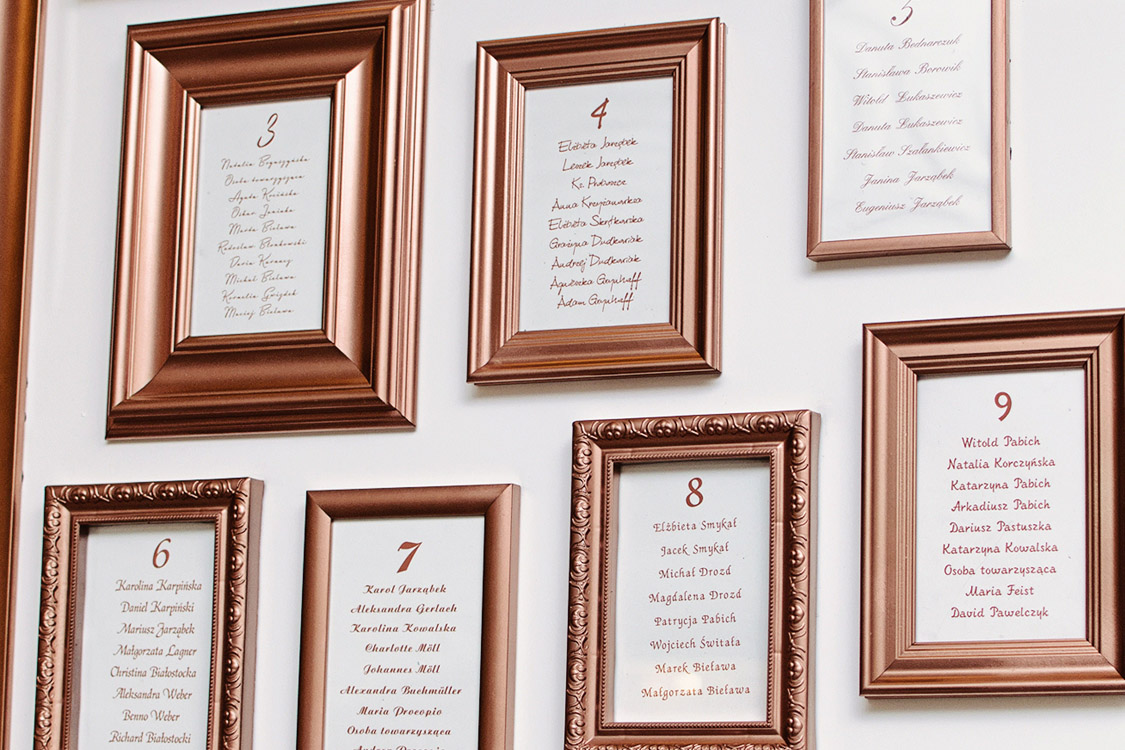 3
Natalia
Osoba towarzysząca
Agata
Oskar
Marta Bielawa
Radosław
Daria
Michał Bielawa
Kornelia Gwizdek
Maciej Bielawa
4
Elżbieta Jarząbek
Leszek Jarząbek
Ks. Proboszcz
Anna
Elżbieta
Grażyna Dudkowiak
Andrzej Dudkowiak
Agnieszka
Adam
5
Danuta Bednarczuk
Stanisława Borowik
Witold Łukaszewicz
Danuta Łukaszewicz
Stanisław Szałankiewicz
Janina Jarząbek
Eugeniusz Jarząbek
6
Karolina Karpińska
Daniel Karpiński
Mariusz Jarząbek
Małgorzata Lagner
Christina Białostocka
Aleksandra Weber
Benno Weber
Richard Białostocki
7
Karol Jarząbek
Aleksandra Gerlach
Karolina Kowalska
Charlotte Möll
Johannes Möll
Alexandra Bachmüller
Maria Procopio
Osoba towarzysząca
8
Elżbieta Smykał
Jacek Smykał
Michał Drozd
Magdalena Drozd
Patrycja Pabich
Wojciech Świtała
Marek Bieława
Małgorzata Bieława
9
Witold Pabich
Natalia Korczyńska
Katarzyna Pabich
Arkadiusz Pabich
Dariusz Pastuszka
Katarzyna Kowalska
Osoba towarzysząca
Maria Feist
David Pawelczyk